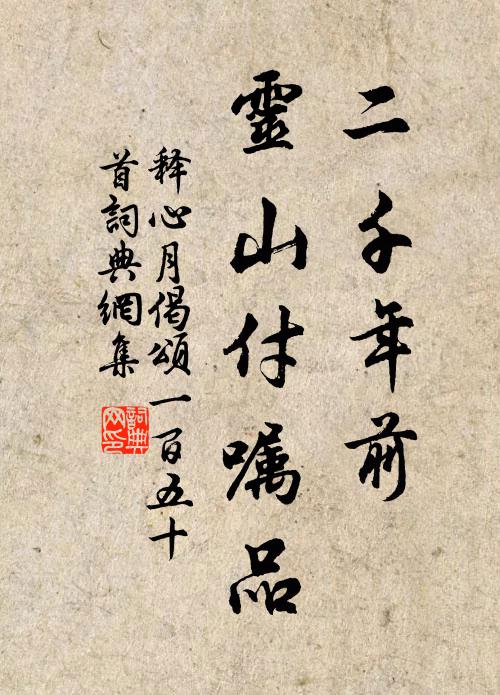 二千年前
靈山付嘱品
释心月偈頌一百五十
首詞典網集
詞典网印